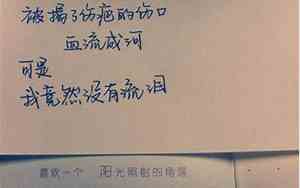 被揭了伤疤的伤口
血流成河
可是
我竟然没有流泪
喜欢一个 阳光照射的角落